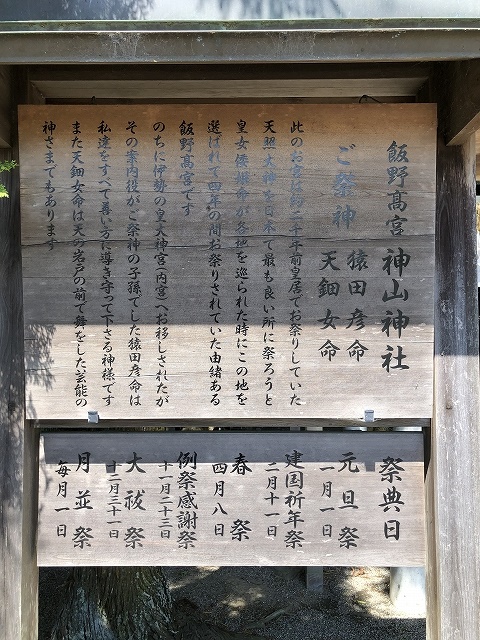 飯野髙宮 神山神社
ご祭神 猿田彦命
天鈿女命
此のお宮は約二千年前皇居でお祭りしていた
天照大神を日本で最も良い所に祭ろうと
皇女倭姫命が各地を巡られた時にこの地を
選ばれて四年の間お祭りされていた由緒ある
飯野髙宮です
のちに伊勢の皇大神宮（内宮）へお移しされたが
その案内役がご祭神の子孫でした猿田彦命は
私達をすべて善い方に導き守って下さる神様です
また天鈿女命は天の岩戸の前で舞をした芸能の
神さまでもあります
祭典日
元旦祭
一月一日
建国祈年祭
二月十一日
春祭
四月八日
例祭感謝祭
十一月二十三日
大祓祭
十二月三十一日
月並祭
毎月一日